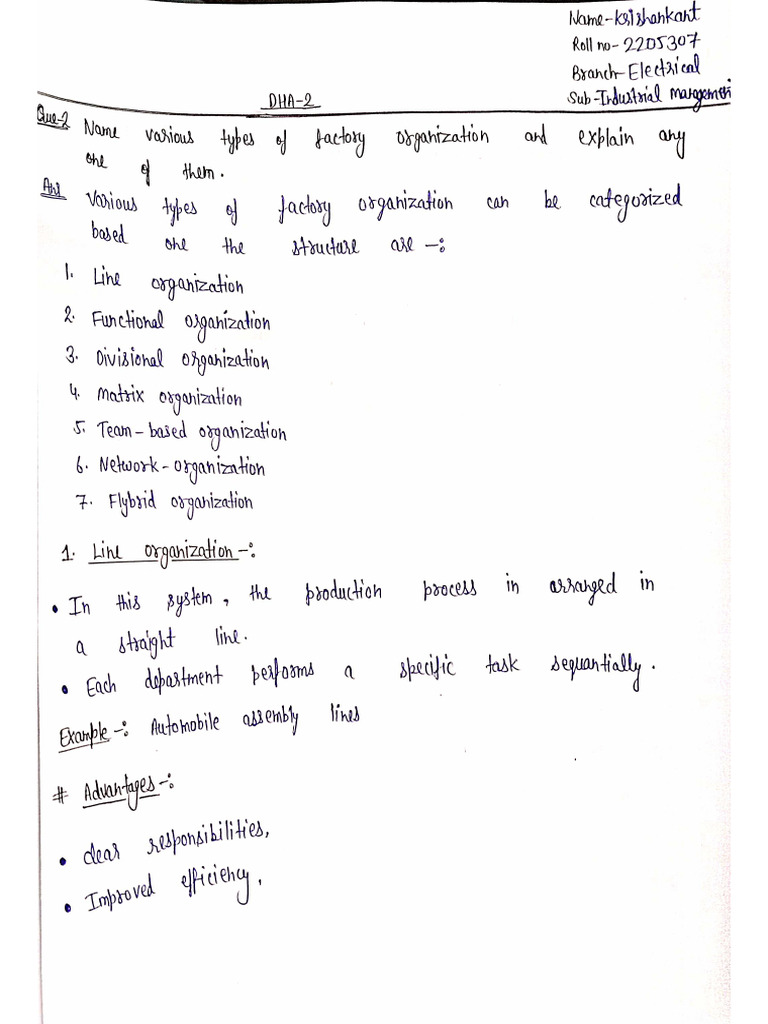 Name-Krishankant
Roll no-2205307
Branch-Electrical
Sub-Industrial Management
DHA-2
Que-2 Name various types of factory organization and explain any
one of them.
Ans Various types of factory organization can be categorized
based one the structure are -:
1. Line organization
2. Functional organization
3. Divisional organization
4. Matrix organization
5. Team-based organization
6. Network-organization
7. Flybrid organization
1. Line organization-:
• In this system, the production process in arranged in
a straight line.
• Each department performs a specific task sequantially.
Example-: Automobile assembly lines
# Advantages-:
• clear responsibilities,
• Improved efficiency,